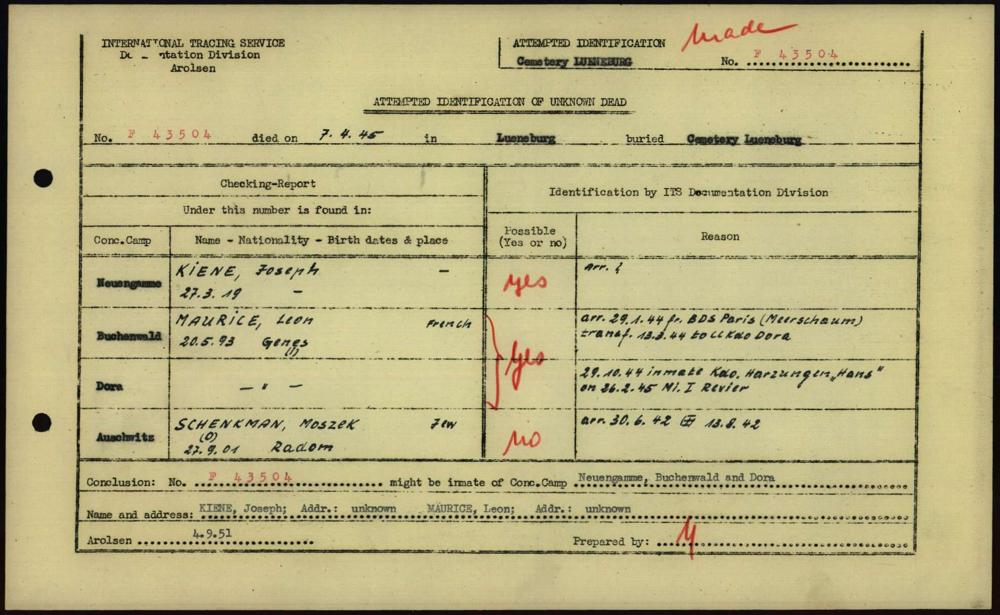 INTERNATIONAL TRACING SERVICE
Documentation Division
Arolsen
ATTEMPTED IDENTIFICATION
Made
Cemetery LUENEBURG No. F 43504
ATTEMPTED IDENTIFICATION OF UNKNOWN DEAD
No. F 43504 died on 7.4.45 in Lueneburg buried Cemetery Lueneburg
Checking-Report
Identification by ITS Documentation Division
Under this number is found in:
Conc.Camp
Name - Nationality - Birth dates & place
Possible
(Yes or no)
Reason
Neuengamme
KIENE, Joseph –
27.3.19 –
yes
arr. ?
Buchenwald
MAURICE, Leon French
20.5.93 Gengs
(!)
yes
arr. 29.1.44 fr. BDS Paris (Meerschaum)
transf. 13.3.44 to LL Kdo Dora
Dora
– " –
29.10.44 inmate Kdo. Harzungen „Hans"
on 26.2.45 Mi. I Revier
Auschwitz
SCHENKMAN, Moszek Jew
(O)
27.9.01 Radom
no
arr. 30.6.42 13.8.42
Conclusion: No. F 43504 might be inmate of Conc.Camp Neuengamme, Buchenwald and Dora
Name and address: KIENE, Joseph; Addr.: unknown MAURICE, Leon; Addr.: unknown
Arolsen 4.9.51 Prepared by: